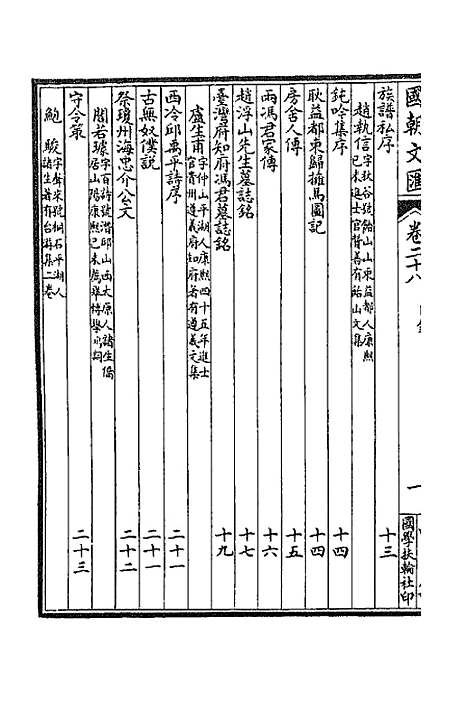 國朝文匯 卷二十八 一 國學扶輪社印
族譜私序 十三
趙執信 字秋谷號飴山山東益都人康熙己未進士官贊善有飴山文集
鈍吟集序 十四
耿益都東歸擁馬圖記 十四
房舍人傳 十五
兩馮君冢傳 十六
趙浮山先生墓誌銘 十七
臺灣府知府馮君墓誌銘 十九
盧生甫 字仲山平湖人康熙四十五年進士官貴州遵義府知府著有遵義文集
西泠邱禹平詩序 二十一
古無奴僕說 二十一
祭瓊州海忠介公文 二十二
閻若璩 字百詩號潛邱山西太原人諸生僑居山陽康熙己未薦舉博學鴻詞
守令策 二十三
鮑 駿 字聲來號桐石平湖人諸生著有台游集二卷